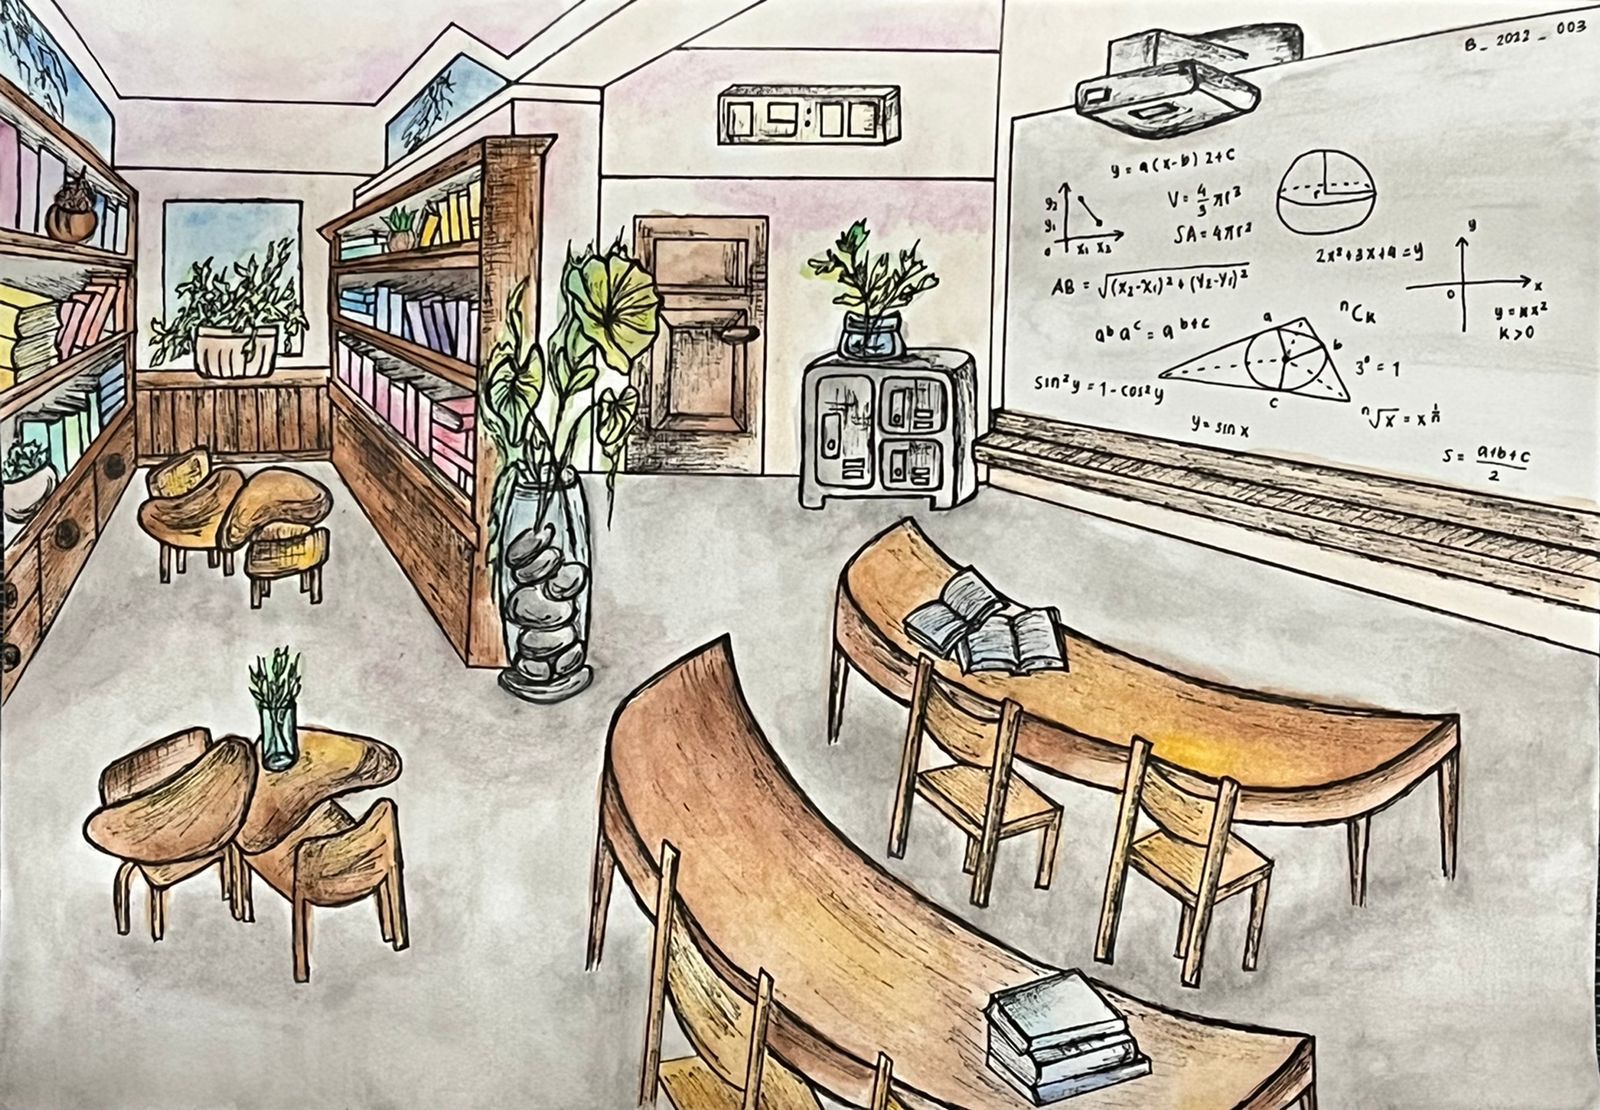 B_2022_003
09:00
y = a(x-b)2+c
y2
y1
0
x1 x2
V = 4/3 πr³
SA = 4πr²
r
2x²+3x+9=y
y
x
0
y = kx²
k>0
AB = √(x2-x1)²+(y2-y1)²
nCk
a^b a^c = a^b+c
a
b
c
3⁰ = 1
sin²y = 1-cos²y
ⁿ√x = x^1/n
y = sin x
S = a+b+c/2